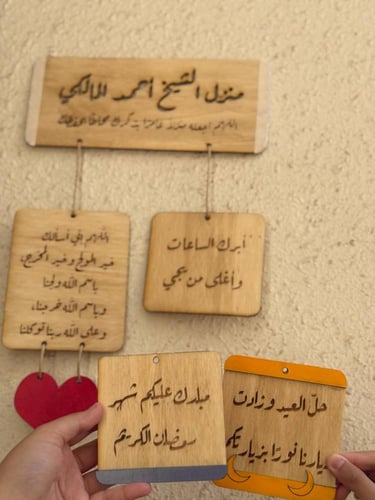 منزل الشيخ أحمد المالكي
اللهم اجعله منزلاً عامرًا بذكرك محاطًا بحفظك
اللهم إني أسألك
خير المولج وخير المخرج،
باسم الله ولجنا
وباسم الله خرجنا،
وعلى الله ربنا توكلنا
أبرك الساعات
وأغلى من يجي
مبارك عليكم شهر
رمضان الكريم
حلّ العيد وزادت
ديارنا نورًا بزيارتكم